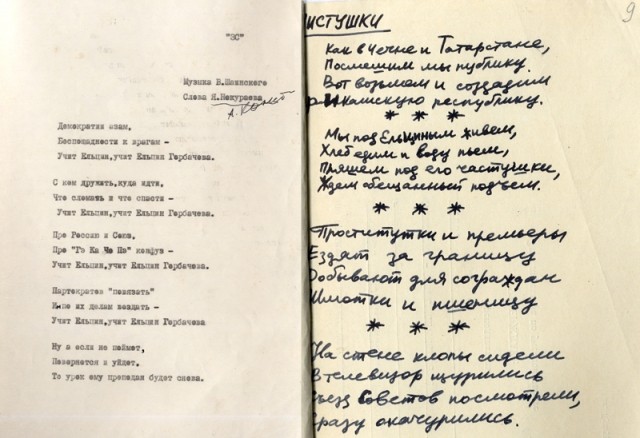 "ЭС"
Музыка В.Шаинского
Слова Н.Некураева
Демократия азам,
Беспощадности к врагам -
Учит Ельцин,учит Ельцин Горбачева.
С кем дружить,куда идти,
Что сломать и что спасти -
Учит Ельцин,учит Ельцин Горбачева.
Про Россию и Союз,
Про "Го Ка Че Пе" конфуз -
Учит Ельцин,учит Ельцин Горбачева.
Парткратов
их делам воздать -
Учит Ельцин,учит Ельцин Горбачева
Ну а если не поймет,
Повернется и уйдет,
То урок ему преподан будет снова.
9
ИСТУШКИ
Как в Чечне и Татарстане,
Посмешим мы публику.
Вот возьмем и создадим
республику.
* * *
Мы под Ельциным живем,
Хлеб едим и воду пьем,
Пляшем под его частушки,
Ждем обещанный подъем.
* * *
Проститутки и премьеры
Ездят за границу
Добывают для сограждан
Шмотки и пшеницу
* * *
На стене клопы сидели
В телевизор щурились
Съезд Советов посмотрели,
Сразу окачурились.